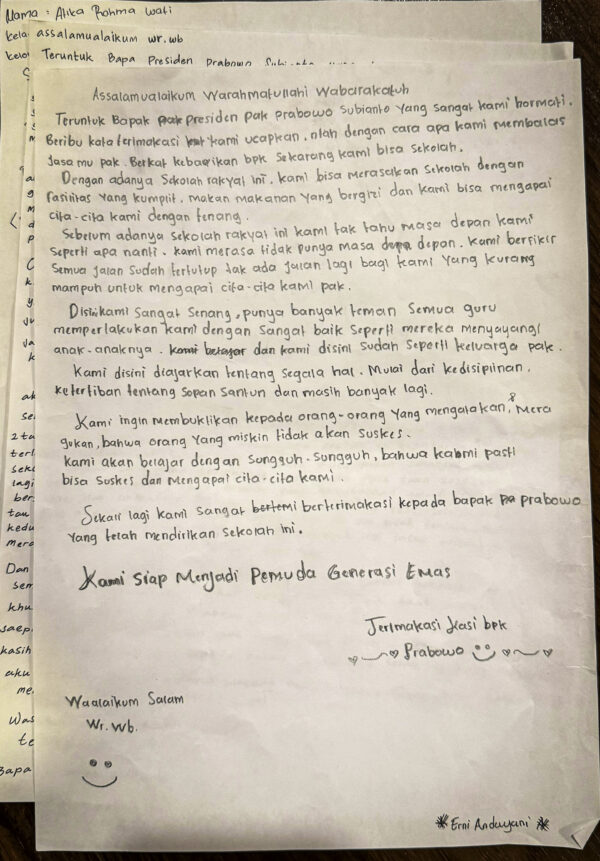 Nama : Alika Rohma Wati
kela
assalamualaikum wr.wb
kelo
Teruntuk Bapa Presiden Prabowo
Assalamualaikum Warahmatullahi Wabarakatuh
Teruntuk Bapak pak presiden pak prabowo Subianto Yang sangat kami hormati.
Beribu kata terimakasi kami ucapkan, ntah dengan cara apa kami membalas
Jasa mu pak. Berkat kebaikan bpk sekarang kami bisa sekolah.
Dengan adanya sekolah rakyat ini, kami bisa merasakan sekolah dengan
fasilitas yang kumplit, makan makanan yang bergizi dan kami bisa mengapai
cita-cita kami dengan tenang.
Sebelum adanya sekolah rakyat ini kami tak tahu masa depan kami
seperti apa nanti. kami merasa tidak punya masa depa depan. kami berfikir
semua jalan sudah tertutup tak ada jalan lagi bagi kami yang kurang
mampuh untuk mengapai cita-cita kami pak.
Disini kami sangat senang, punya banyak teman semua guru
memperlakukan kami dengan sangat baik seperti mereka menyayangi
anak-anaknya. kami belajar dan kami disini sudah seperti keluarga pak.
Kami disini diajarkan tentang segala hal. Mulai dari kedisiplinan,
ketertiban tentang sopan santun dan masih banyak lagi.
Kami ingin membuktikan kepada orang-orang yang mengatakan, & Mera
gukan, bahwa orang yang miskin tidak akan suskes.
Kami akan belajar dengan sungguh-sungguh, bahwa kami pasti
bisa suskes dan mengapai cita-cita kami.
Sekali lagi kami sangat bertemi berterimakasi kepada bapak pa prabowo
yang telah mendirikan sekolah ini.
Kami siap Menjadi Pemuda Generasi Emas
Terimakasi kasi bpk
Prabowo
Waalaikum Salam
Wr. Wb.
Erni Andayani